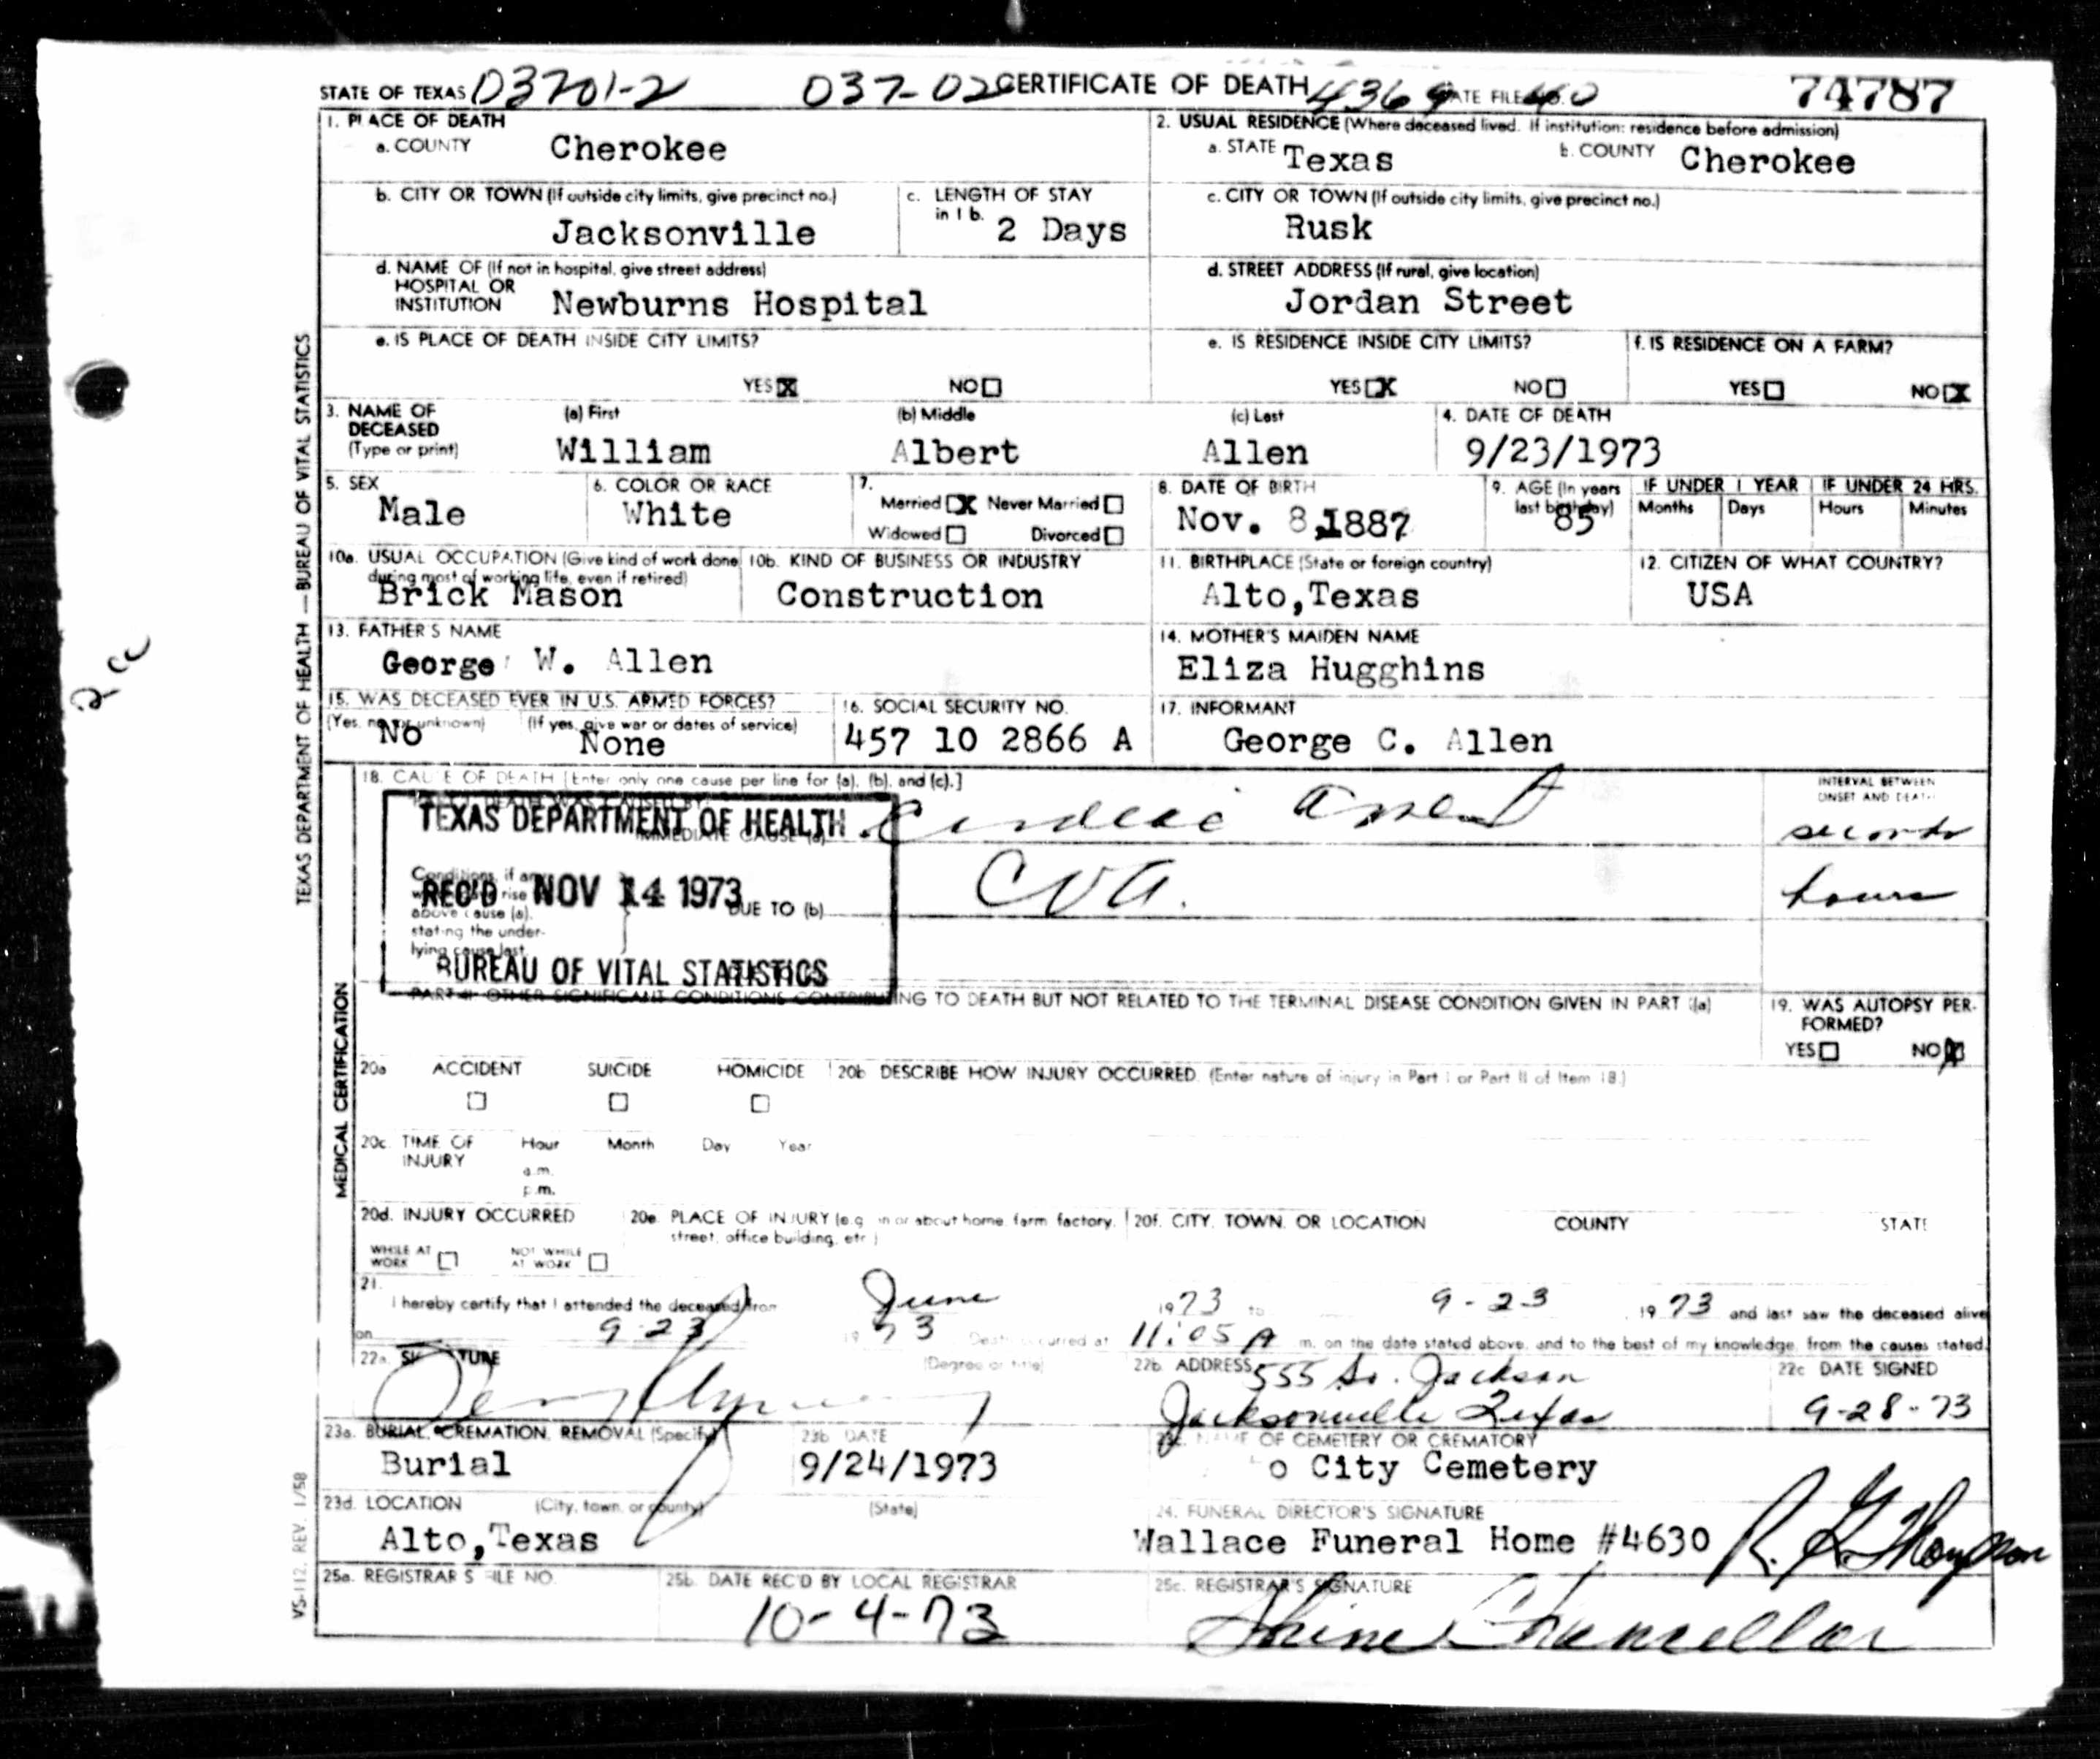 STATE OF TEXAS D3701-2 037-02 CERTIFICATE OF DEATH 4369 STATE FILE NO. 74787
1. PLACE OF DEATH
a. COUNTY Cherokee
2. USUAL RESIDENCE (Where deceased lived. If institution: residence before admission)
a. STATE Texas b. COUNTY Cherokee
b. CITY OR TOWN (If outside city limits, give precinct no.)
Jacksonville
c. LENGTH OF STAY
in 1 b. 2 Days
c. CITY OR TOWN (If outside city limits, give precinct no.)
Rusk
d. NAME OF (If not in hospital, give street address)
HOSPITAL OR
INSTITUTION Newburns Hospital
d. STREET ADDRESS (If rural, give location)
Jordan Street
e. IS PLACE OF DEATH INSIDE CITY LIMITS?
YES X NO
e. IS RESIDENCE INSIDE CITY LIMITS?
YES X NO
f. IS RESIDENCE ON A FARM?
YES NO X
3. NAME OF DECEASED
(Type or print)
(a) First (b) Middle (c) Last
William Albert Allen
4. DATE OF DEATH
9/23/1973
5. SEX
Male
6. COLOR OR RACE
White
7.
Married X Never Married
Widowed Divorced
8. DATE OF BIRTH
Nov. 8,1887
9. AGE (In years
last birthday)
85
IF UNDER 1 YEAR IF UNDER 24 HRS.
Months Days Hours Minutes
10a. USUAL OCCUPATION (Give kind of work done
during most of working life, even if retired)
Brick Mason
10b. KIND OF BUSINESS OR INDUSTRY
Construction
11. BIRTHPLACE (State or foreign country)
Alto,Texas
12. CITIZEN OF WHAT COUNTRY?
USA
13. FATHER'S NAME
George W. Allen
14. MOTHER'S MAIDEN NAME
Eliza Hugghins
15. WAS DECEASED EVER IN U.S. ARMED FORCES?
(Yes, no, or unknown) (If yes, give war or dates of service)
No None
16. SOCIAL SECURITY NO.
457 10 2866 A
17. INFORMANT
George C. Allen
18. CAUSE OF DEATH [Enter only one cause per line for (a), (b), and (c).]
INTERVAL BETWEEN
ONSET AND DEATH
IMMEDIATE CAUSE (a) Cardiac arrest seconds
TEXAS DEPARTMENT OF HEALTH
REC'D NOV 14 1973
BUREAU OF VITAL STATISTICS
Conditions, if any
above cause (a),
stating the under-
lying cause last.
DUE TO (b) CVA. hours
PART II. OTHER SIGNIFICANT CONDITIONS CONTRIBUTING TO DEATH BUT NOT RELATED TO THE TERMINAL DISEASE CONDITION GIVEN IN PART I(a)
19. WAS AUTOPSY PER-
FORMED?
YES NO X
20a ACCIDENT SUICIDE HOMICIDE
20b DESCRIBE HOW INJURY OCCURRED. (Enter nature of injury in Part I or Part II of Item 18.)
20c TIME OF
INJURY
Hour Month Day Year
a.m.
p.m.
20d. INJURY OCCURRED
WHILE AT
WORK
NOT WHILE
AT WORK
20e. PLACE OF INJURY (e.g. in or about home, farm, factory,
street, office building, etc.)
20f. CITY, TOWN, OR LOCATION COUNTY STATE
21.
I hereby certify that I attended the deceased from June 1973 to 9-23 1973 and last saw the deceased alive
on 9 23 1973 Death occurred at 11:05 A m. on the date stated above, and to the best of my knowledge, from the causes stated.
22a. SIGNATURE (Degree or title)
22b. ADDRESS 555 So. Jackson
Jacksonville Texas
22c DATE SIGNED
9-28-73
23a. BURIAL, CREMATION, REMOVAL (Specify)
Burial
23b DATE
9/24/1973
23c. NAME OF CEMETERY OR CREMATORY
o City Cemetery
23d. LOCATION (City, town, or county) (State)
Alto,Texas
24. FUNERAL DIRECTOR'S SIGNATURE
Wallace Funeral Home #4630 R. G. Thompson
25a. REGISTRAR'S FILE NO.
25b. DATE REC'D BY LOCAL REGISTRAR
10-4-73
25c. REGISTRAR'S SIGNATURE
Chancellor
TEXAS DEPARTMENT OF HEALTH — BUREAU OF VITAL STATISTICS
MEDICAL CERTIFICATION
VS-112 REV. 1/58
2 cc